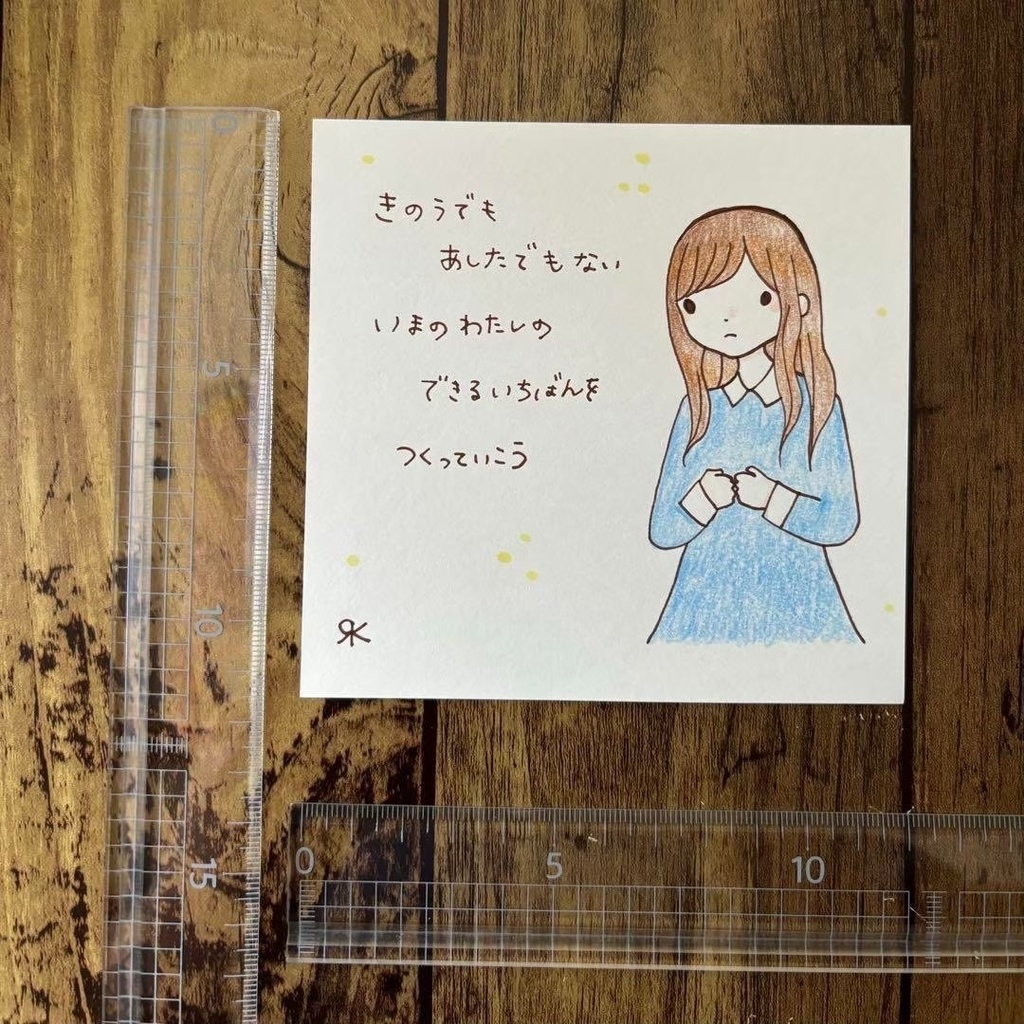 きのうでも
あしたでもない
いまのわたしの
できるいちばんを
つくっていこう
0
5
10
15
0
5
10